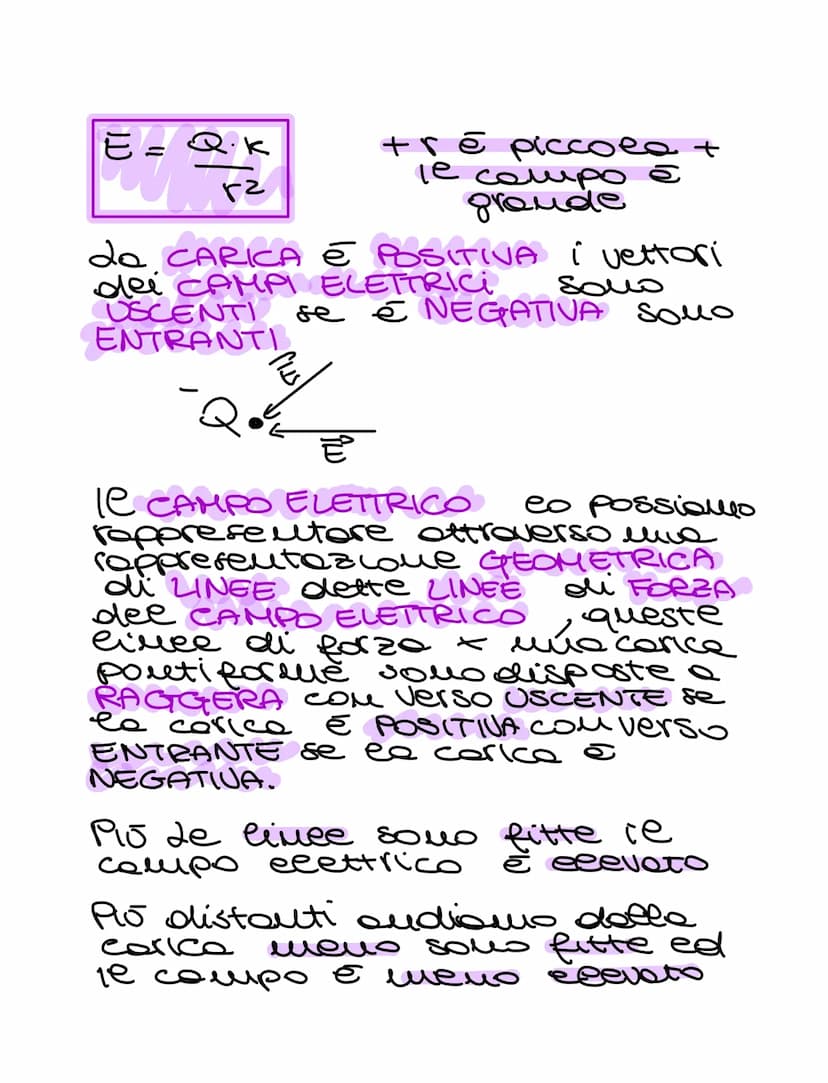 E = Q·K / r²
+ r è piccolo +
il campo è
grande
da CARICA è POSITIVA i vettori
dei CAMPI ELETTRICI sono
USCENTI se è NEGATIVA sono
ENTRANTI
E
-Q
E
Il CAMPO ELETTRICO lo possiamo
rappresentare attraverso una
rappresentazione GEOMETRICA
di LINEE dette LINEE di FORZA
del CAMPO ELETTRICO, queste
linee di forza x una carica
puntiforme sono disposte a
RAGGERA con verso USCENTE se
la carica è POSITIVA con verso
ENTRANTE se la carica è
NEGATIVA.
Più le linee sono fitte il
campo elettrico è elevato
Più distanti andiamo dalla
carica meno sono fitte ed
il campo è meno elevato